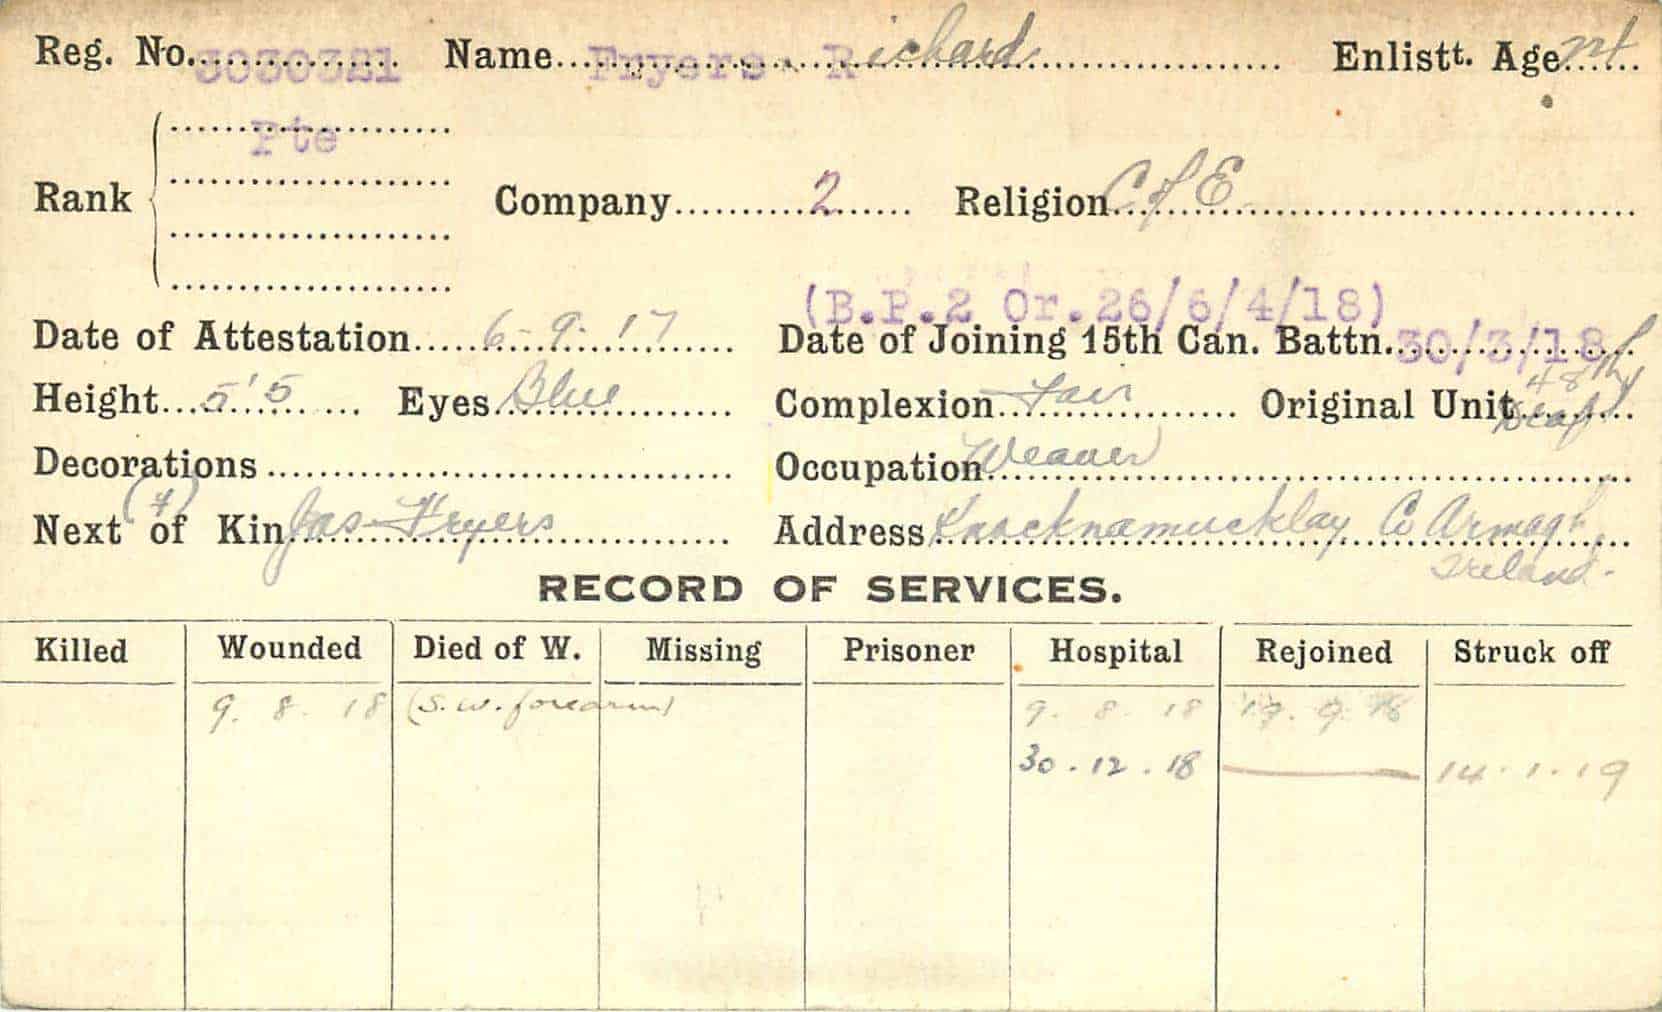 Reg. No. 3030321 Name Fryers. Richard Enlistt. Age
Pte
Rank Company 2 Religion C of E
(B.P.2 Or.26/6/4/18)
Date of Attestation 6-9-17 Date of Joining 15th Can. Battn. 30/3/18
Height 5'5 Eyes Blue Complexion Fair Original Unit 48th
Decorations Occupation Weaver
(f)
Next of Kin Jas Fryers Address Knocknamucklay Co Armagh
Ireland.
RECORD OF SERVICES.
Killed Wounded Died of W. Missing Prisoner Hospital Rejoined Struck off
9. 8. 18 (S.W. forearm) 9. 8. 18
30. 12. 18 14. 1. 19